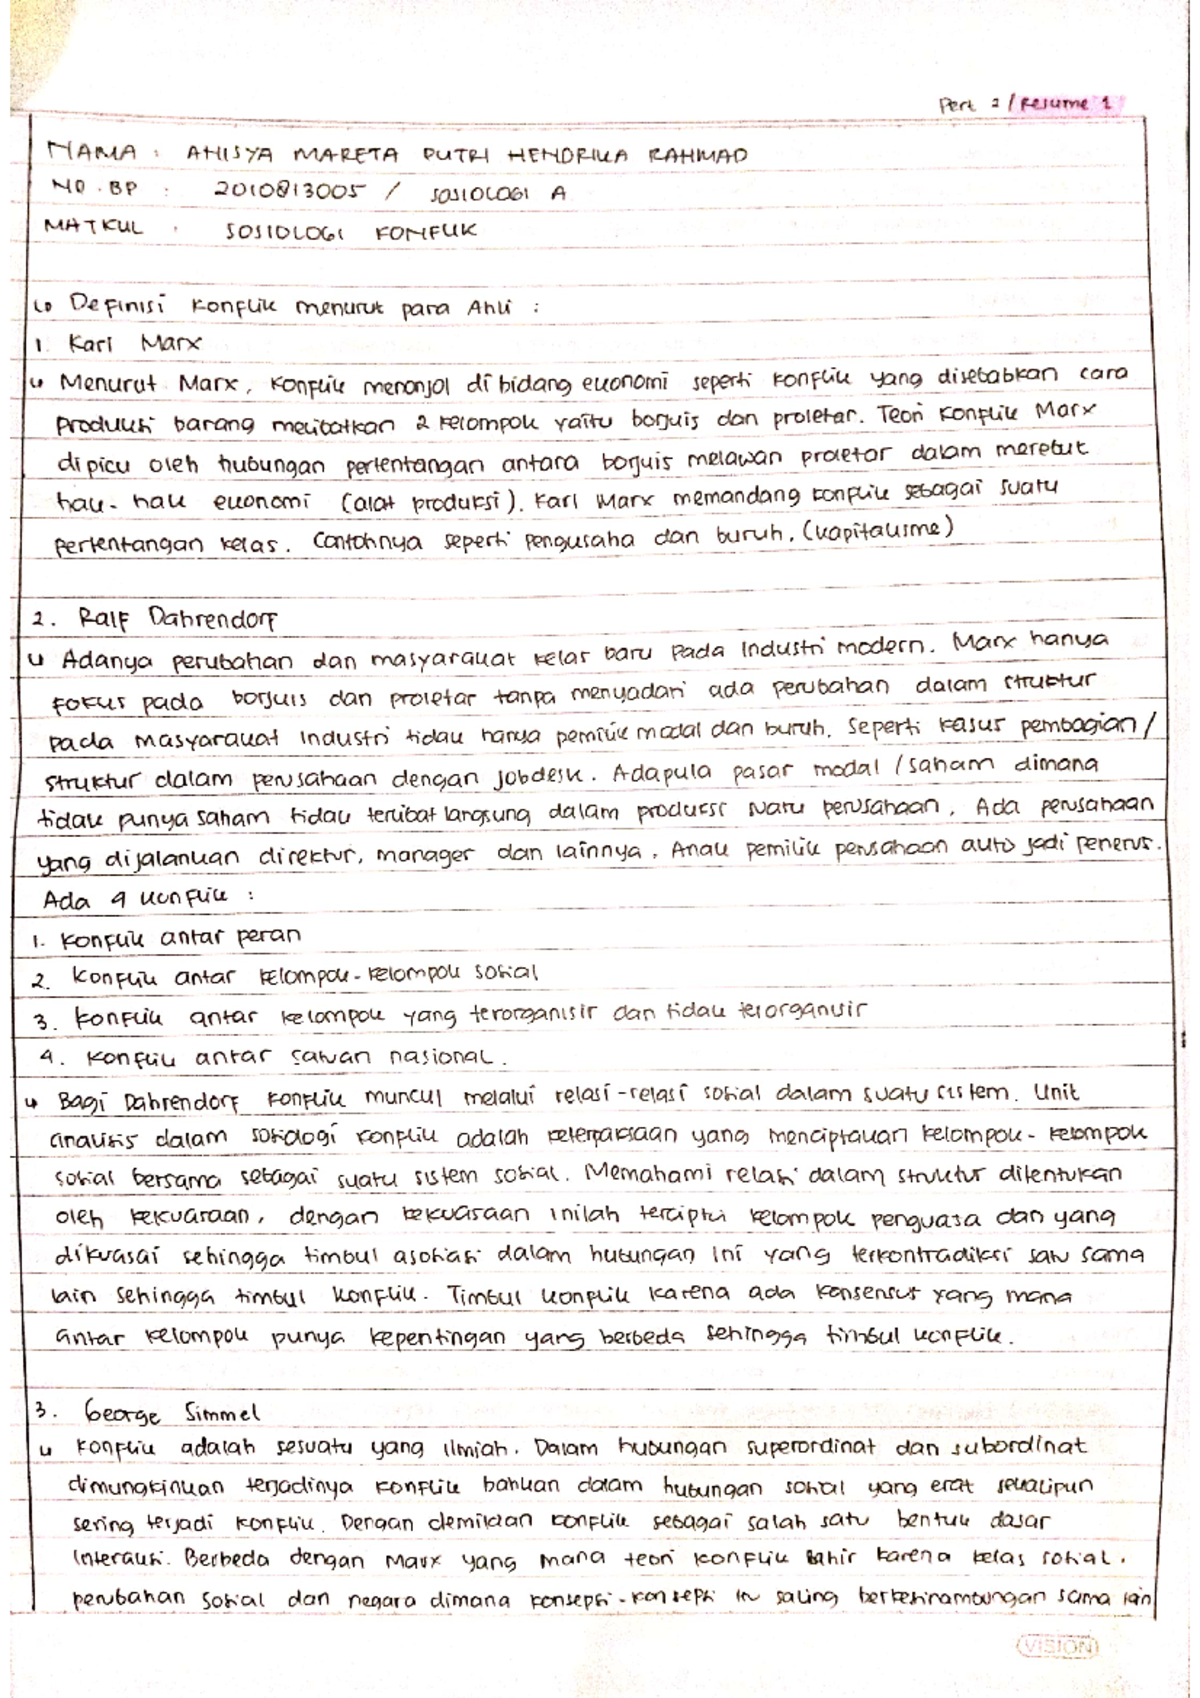 Pert 2 / Resume 1
NAMA : ANISYA MARETA PUTRI HENDRIKA RAHMAD
NO. BP : 2010813005 / SOSIOLOGI A
MATKUL : SOSIOLOGI KONFLIK
Definisi Konflik menurut para Ahli :
1. Karl Marx
Menurut Marx, Konflik menonjol di bidang ekonomi seperti konflik yang disebabkan cara
produksi barang melibatkan 2 kelompok yaitu borjuis dan proletar. Teori Konflik Marx
dipicu oleh hubungan pertentangan antara borjuis melawan proletar dalam merebut
hak-hak ekonomi (alat produksi). Karl Marx memandang konflik sebagai suatu
pertentangan kelas. Contohnya seperti pengusaha dan buruh. (kapitalisme)
2. Ralf Dahrendorf
Adanya perubahan dan masyarakat kelas baru pada industri modern. Marx hanya
fokus pada borjuis dan proletar tanpa menyadari ada perubahan dalam struktur
pada masyarakat industri tidak hanya pemilik modal dan buruh. Seperti kasus pembagian /
struktur dalam perusahaan dengan jobdesk. Adapula pasar modal / saham dimana
tidak punya saham tidak terlibat langsung dalam produksi suatu perusahaan. Ada perusahaan
yang dijalankan direktur, manager dan lainnya. Anak pemilik perusahaan auto jadi penerus.
Ada 4 Konflik :
1. Konflik antar peran
2. Konflik antar kelompok-kelompok sosial
3. Konflik antar kelompok yang terorganisir dan tidak terorganisir
4. Konflik antar satuan nasional.
Bagi Dahrendorf konflik muncul melalui relasi-relasi sosial dalam suatu sistem. Unit
analisis dalam sosiologi konflik adalah keterpaksaan yang menciptakan kelompok-kelompok
sosial bersama sebagai suatu sistem sosial. Memahami relasi dalam struktur ditentukan
oleh kekuasaan, dengan kekuasaan inilah tercipta kelompok penguasa dan yang
dikuasai sehingga timbul asosiasi dalam hubungan ini yang terkontradiksi satu sama
lain sehingga timbul konflik. Timbul konflik karena ada konsensus yang mana
antar kelompok punya kepentingan yang berbeda sehingga timbul konflik.
3. George Simmel
Konflik adalah sesuatu yang ilmiah. Dalam hubungan superordinat dan subordinat
dimungkinkan terjadinya konflik bahkan dalam hubungan sosial yang erat sekalipun
sering terjadi konflik. Dengan demikian konflik sebagai salah satu bentuk dasar
interaksi. Berbeda dengan Marx yang mana teori konflik lahir karena kelas sosial,
perubahan sosial dan negara dimana konsepsi-konsepsi itu saling berkesinambungan sama lain
VISION